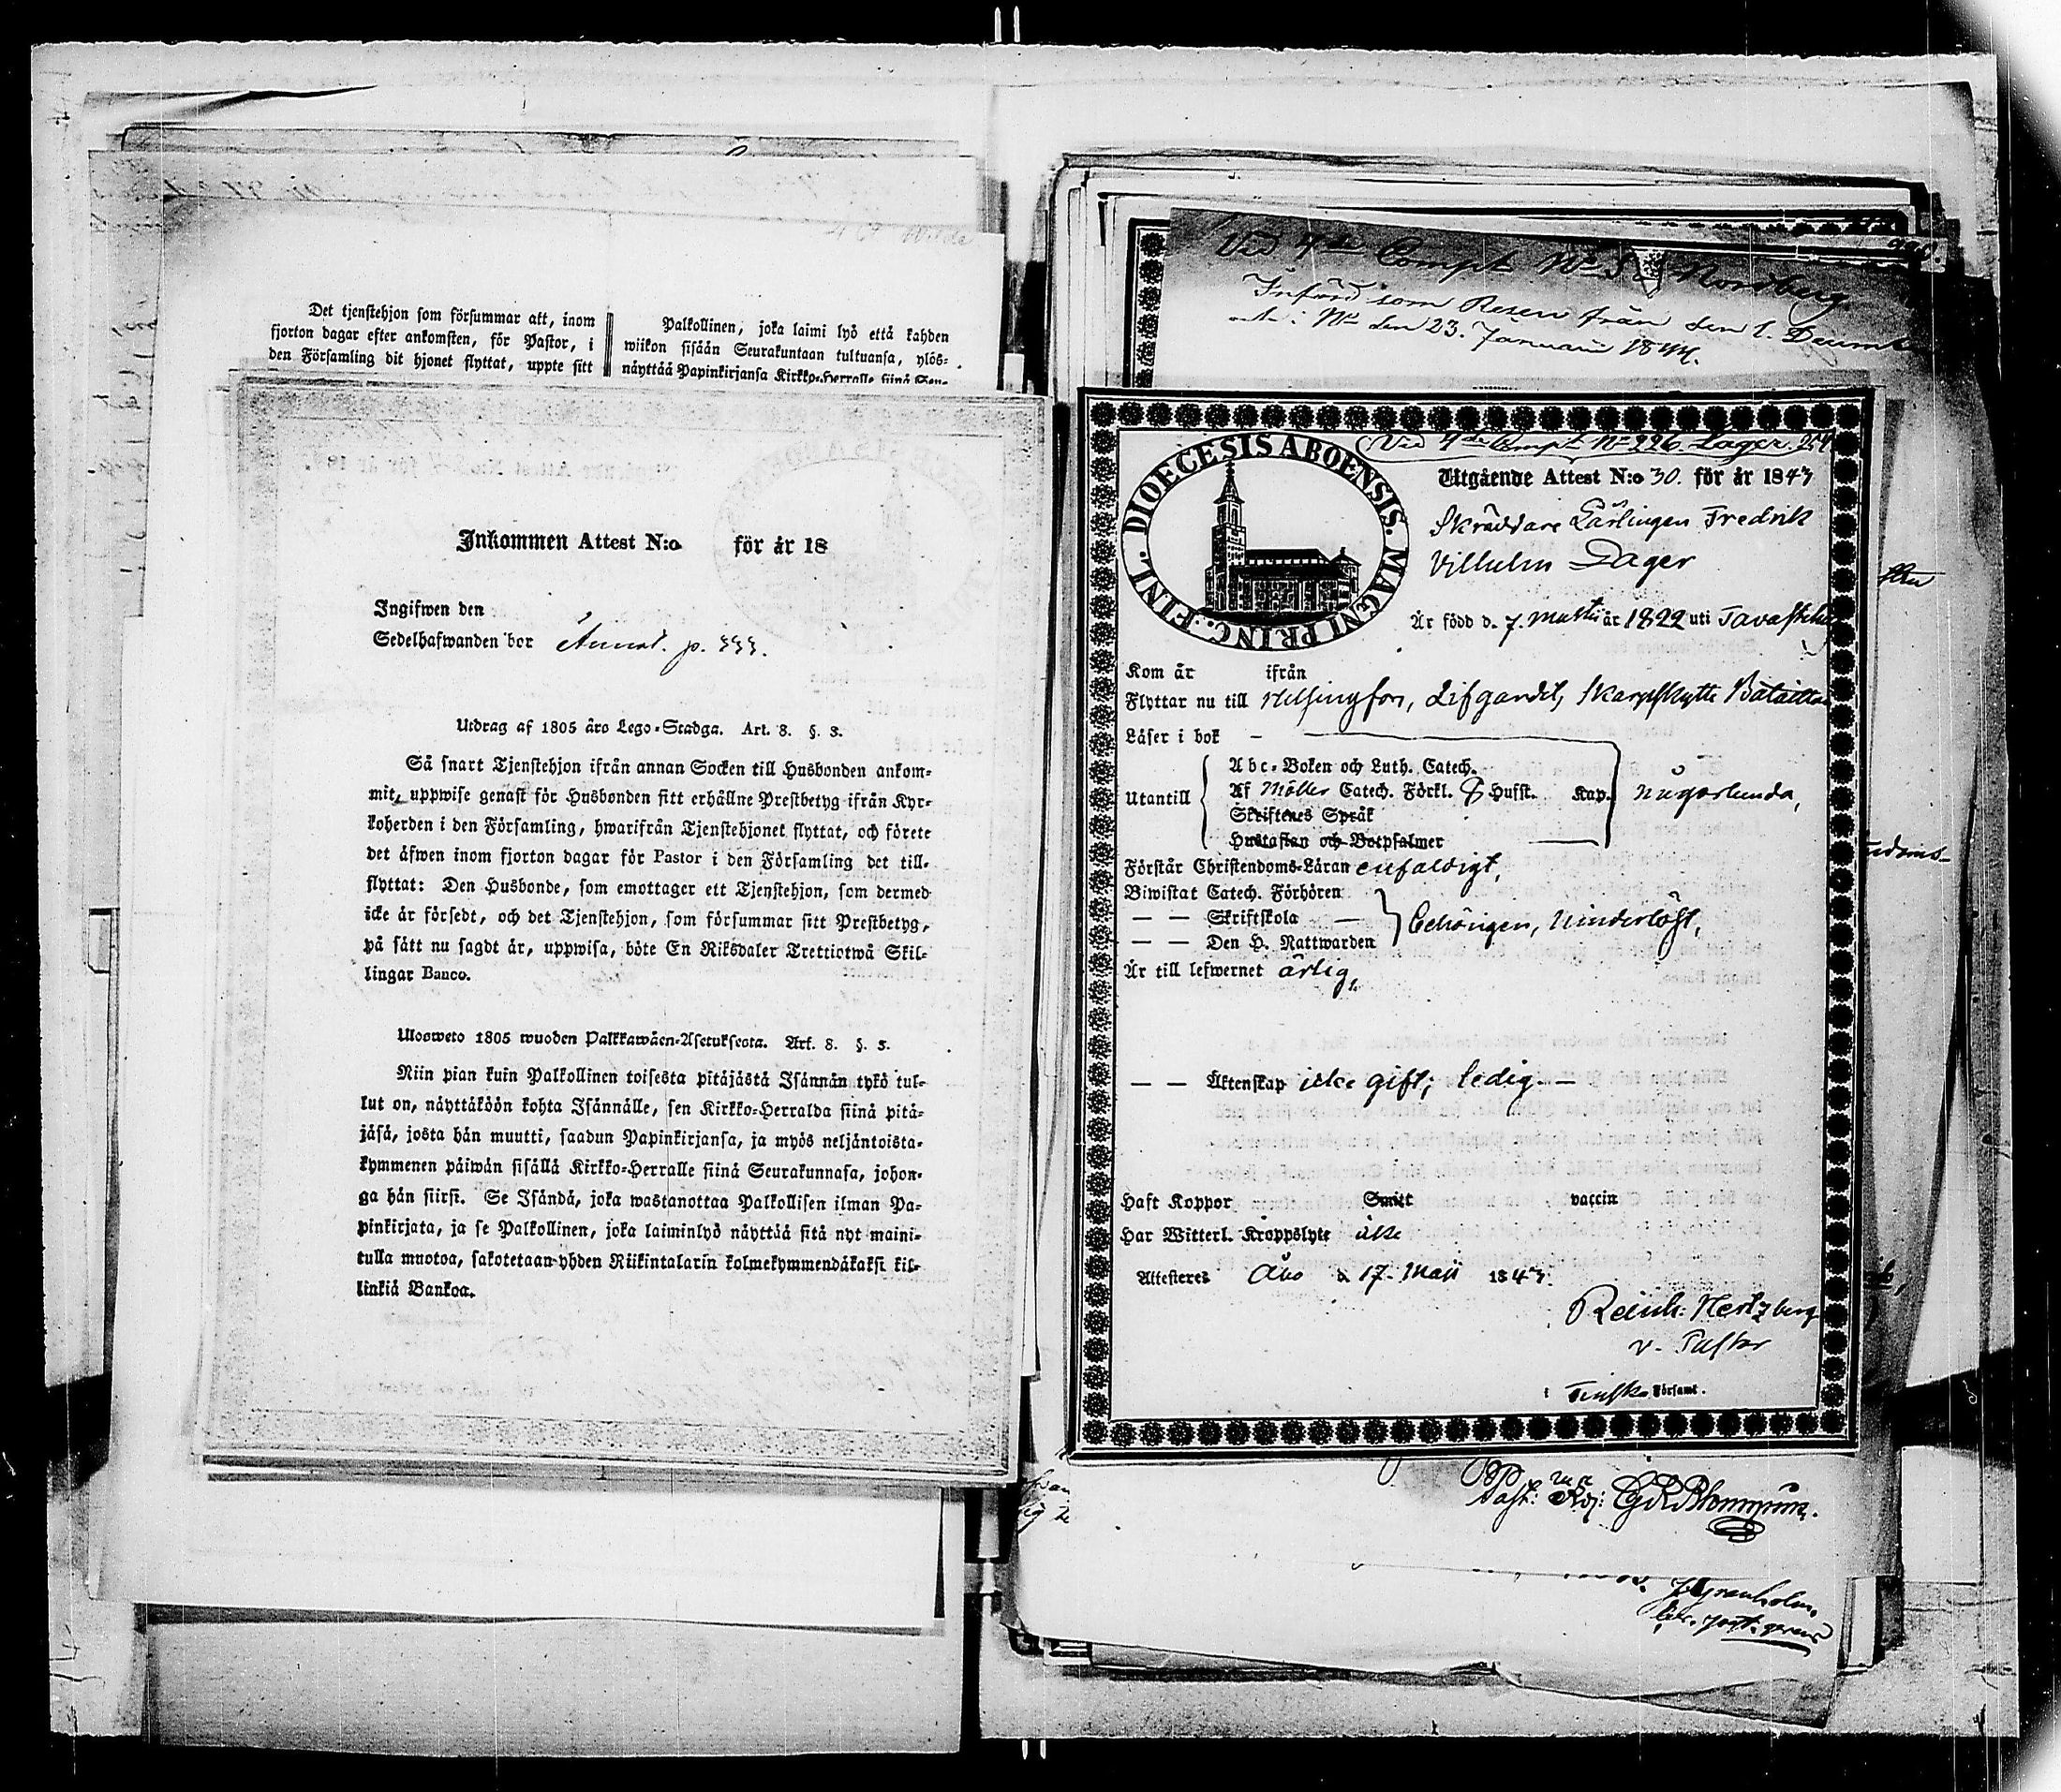 Det tjenstehjon som försummar att, inom
fjorton dagar efter ankomsten, för Pastor, i
den Församling dit hjonet flyttat, uppte sitt
Palkollinen, joka laimi lyö että kahden
wiikon sisään Seurakuntaan tultuansa, ylös-
näyttää Papinkirjansa Kirkko-Herralle siinä Seu-
Inkommen Attest N:o för år 18
Ingifwen den
Sedelhafwanden bor Annot. p. 333.
Utdrag af 1805 års Lego-Stadga. Art. 8. §. 3.
Så snart Tjenstehjon ifrån annan Socken till Husbonden ankom-
mit, uppwise genast för Husbonden sitt erhållne Prestbetyg ifrån Kyr-
koherden i den Församling, hwarifrån Tjenstehjonet flyttat, och förete
det äfwen inom fjorton dagar för Pastor i den Församling det till-
flyttat: Den Husbonde, som emottager ett Tjenstehjon, som dermed
icke är försedt, och det Tjenstehjon, som försummar sitt Prestbetyg,
på sätt nu sagdt är, uppwisa, böte En Riksdaler Trettiotwå Skil-
lingar Banco.
Ulosweto 1805 wuoden Palkkawäen-Asetuksesta. Art. 8. §. 3.
Niin pian kuin Palkollinen toisesta pitäjästä Isännän tykö tul-
lut on, näyttäköön kohta Isännälle, sen Kirkko-Herralda siinä pitä-
jäsä, josta hän muutti, saadun Papinkirjansa, ja myös neljäntoista-
kymmenen päiwän sisällä Kirkko-Herralle siinä Seurakunnasa, johon-
ga hän siirsi. Se Isändä, joka wastanottaa Palkollisen ilman Pa-
pinkirjata, ja se Palkollinen, joka laiminlyö näyttää sitä nyt maini-
tulla muotoa, sakotetaan yhden Riikintalarin kolmekymmendäkaksi kil-
linkiä Bankoa.
Vid 4de Compt No 5 Nordberg
Införd som Reserv från den 1. Decemb
den 23. Januari 1844.
Vid 4de Compt No 226 Lager. 254
DIOECESIS ABOENSIS. MAGNI PRINC. FINL.
Utgående Attest N:o 30. för år 1843
Skräddare Lärlingen Fredrik
Vilhelm Lager
Är född d. 7. Martii år 1822 uti Tavastehus
Kom år ifrån
Flyttar nu till Helsingfors, Lifgardets Skarpskytte Bataillon
Läser i bok —
Abc-Boken och Luth. Catech.
Utantill Af Möller Catech. Förkl. & Hufst. Kap. någorlunda,
Skriftenes Språk
Hustaflan och Botpsalmer
Förstår Christendoms-Läran enfaldigt,
Biwistat Catech. Förhören
— — Skriftskola — behörigen, hinderlöst,
— — Den H. Nattwarden
Är till lefwernet ärlig,
— — Äktenskap icke gift; ledig. —
Haft Koppor Smitt vaccin
Har Witterl. Kroppslyte icke
Attesteres Åbo d. 17. Maji 1843.
Reinh: Hertzberg
v. Pastor
i Finska Församl.